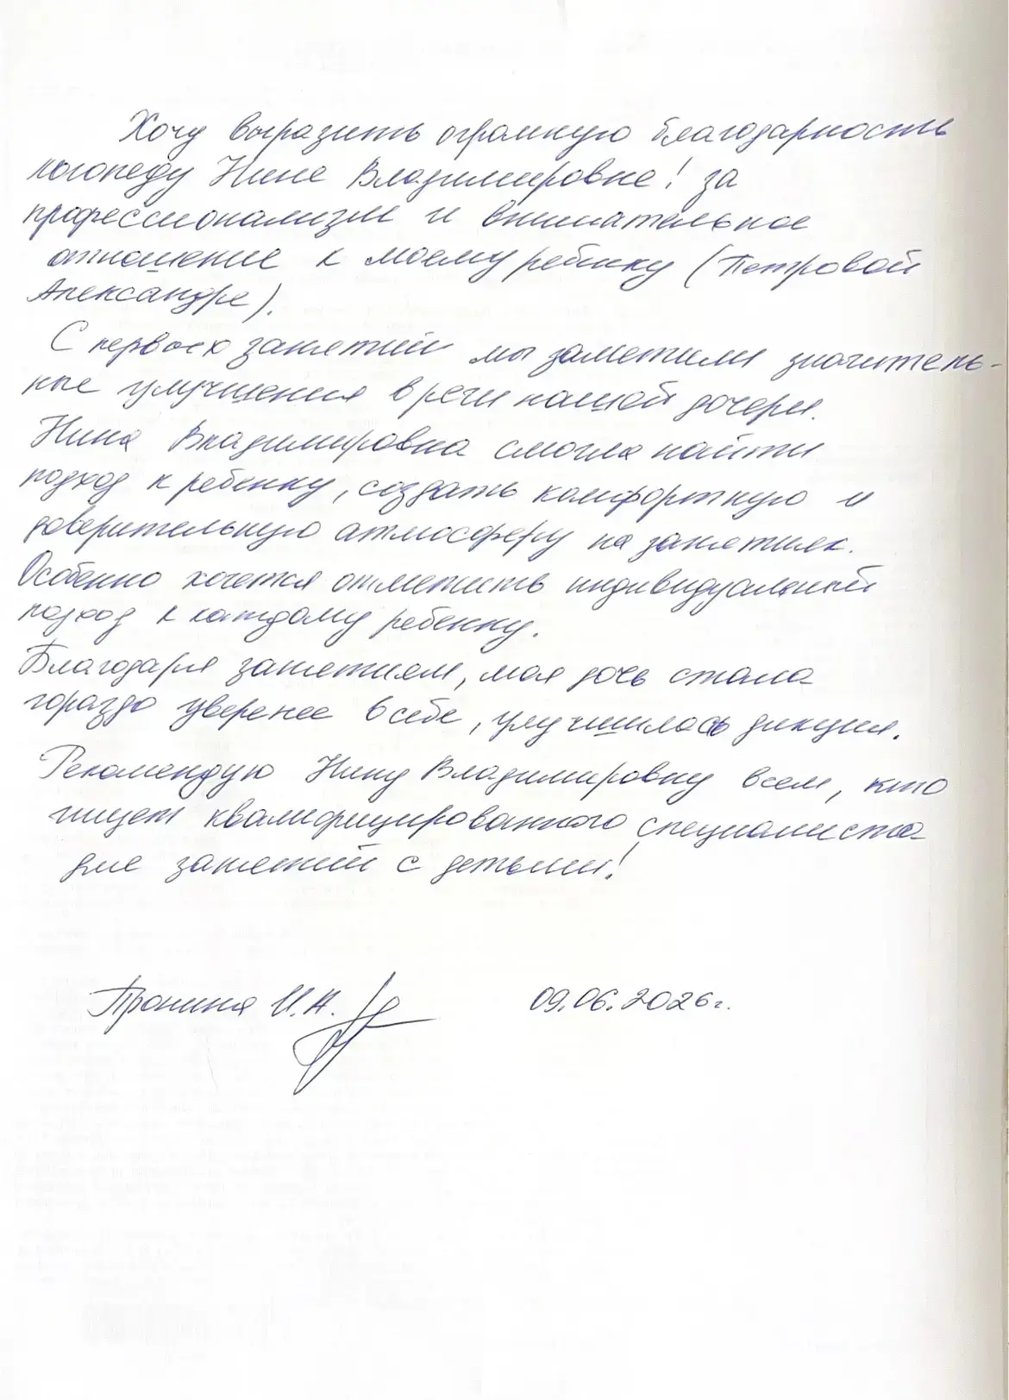 Хочу выразить огромную благодарность
логопеду Нине Владимировне! за
профессионализм и внимательное
отношение к моему ребенку (Петровой
Александре).
С первых занятий мы заметили значитель-
ные улучшения в речи нашей дочери.
Нина Владимировна смогла найти
подход к ребенку, создать комфортную и
доверительную атмосферу на занятиях.
Особенно хочется отметить индивидуальный
подход к каждому ребенку.
Благодаря занятиям, моя дочь стала
гораздо увереннее в себе, улучшилась дикция.
Рекомендую Нину Владимировну всем, кто
ищет квалифицированного специалиста
для занятий с детьми!
Пронина И.А. 09.06.2026г.